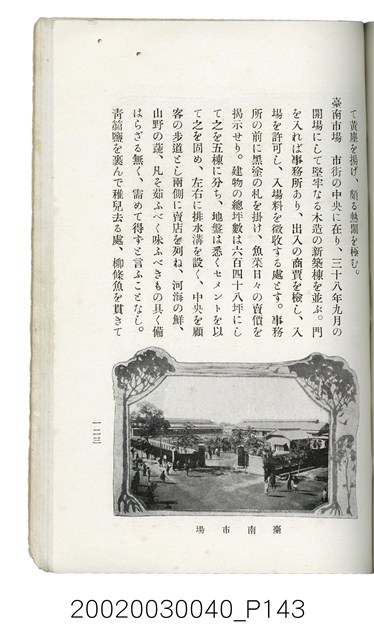 て黃塵を揚げ、頗る熱鬧を極む。
臺南市場　市街の中央に在り、三十八年九月の
開場にして堅牢なる木造の新築棟を並ぶ。門
を入れば事務所あり、出入の商賈を檢し、入
場を許可し、入場料を徵收する處とす。事務
所の前に黑塗の札を掛け、魚菜日々の賣價を
揭示せり。建物の總坪數は六百四十八坪にし
て之を五棟に分ち、地盤は悉くセメントを以
て之を固め、左右に排水溝を設く、中央を顧
客の步道とし兩側に賣店を列ね、河海の鮮、
山野の蔬、凡そ茹ふべく味ふべきもの具く備
はらざる無く、需めて得ずと言ふことなし。
靑篛鹽を裹んで稚兒去る處、柳條魚を貫きて
臺南市場
20020030040_P143